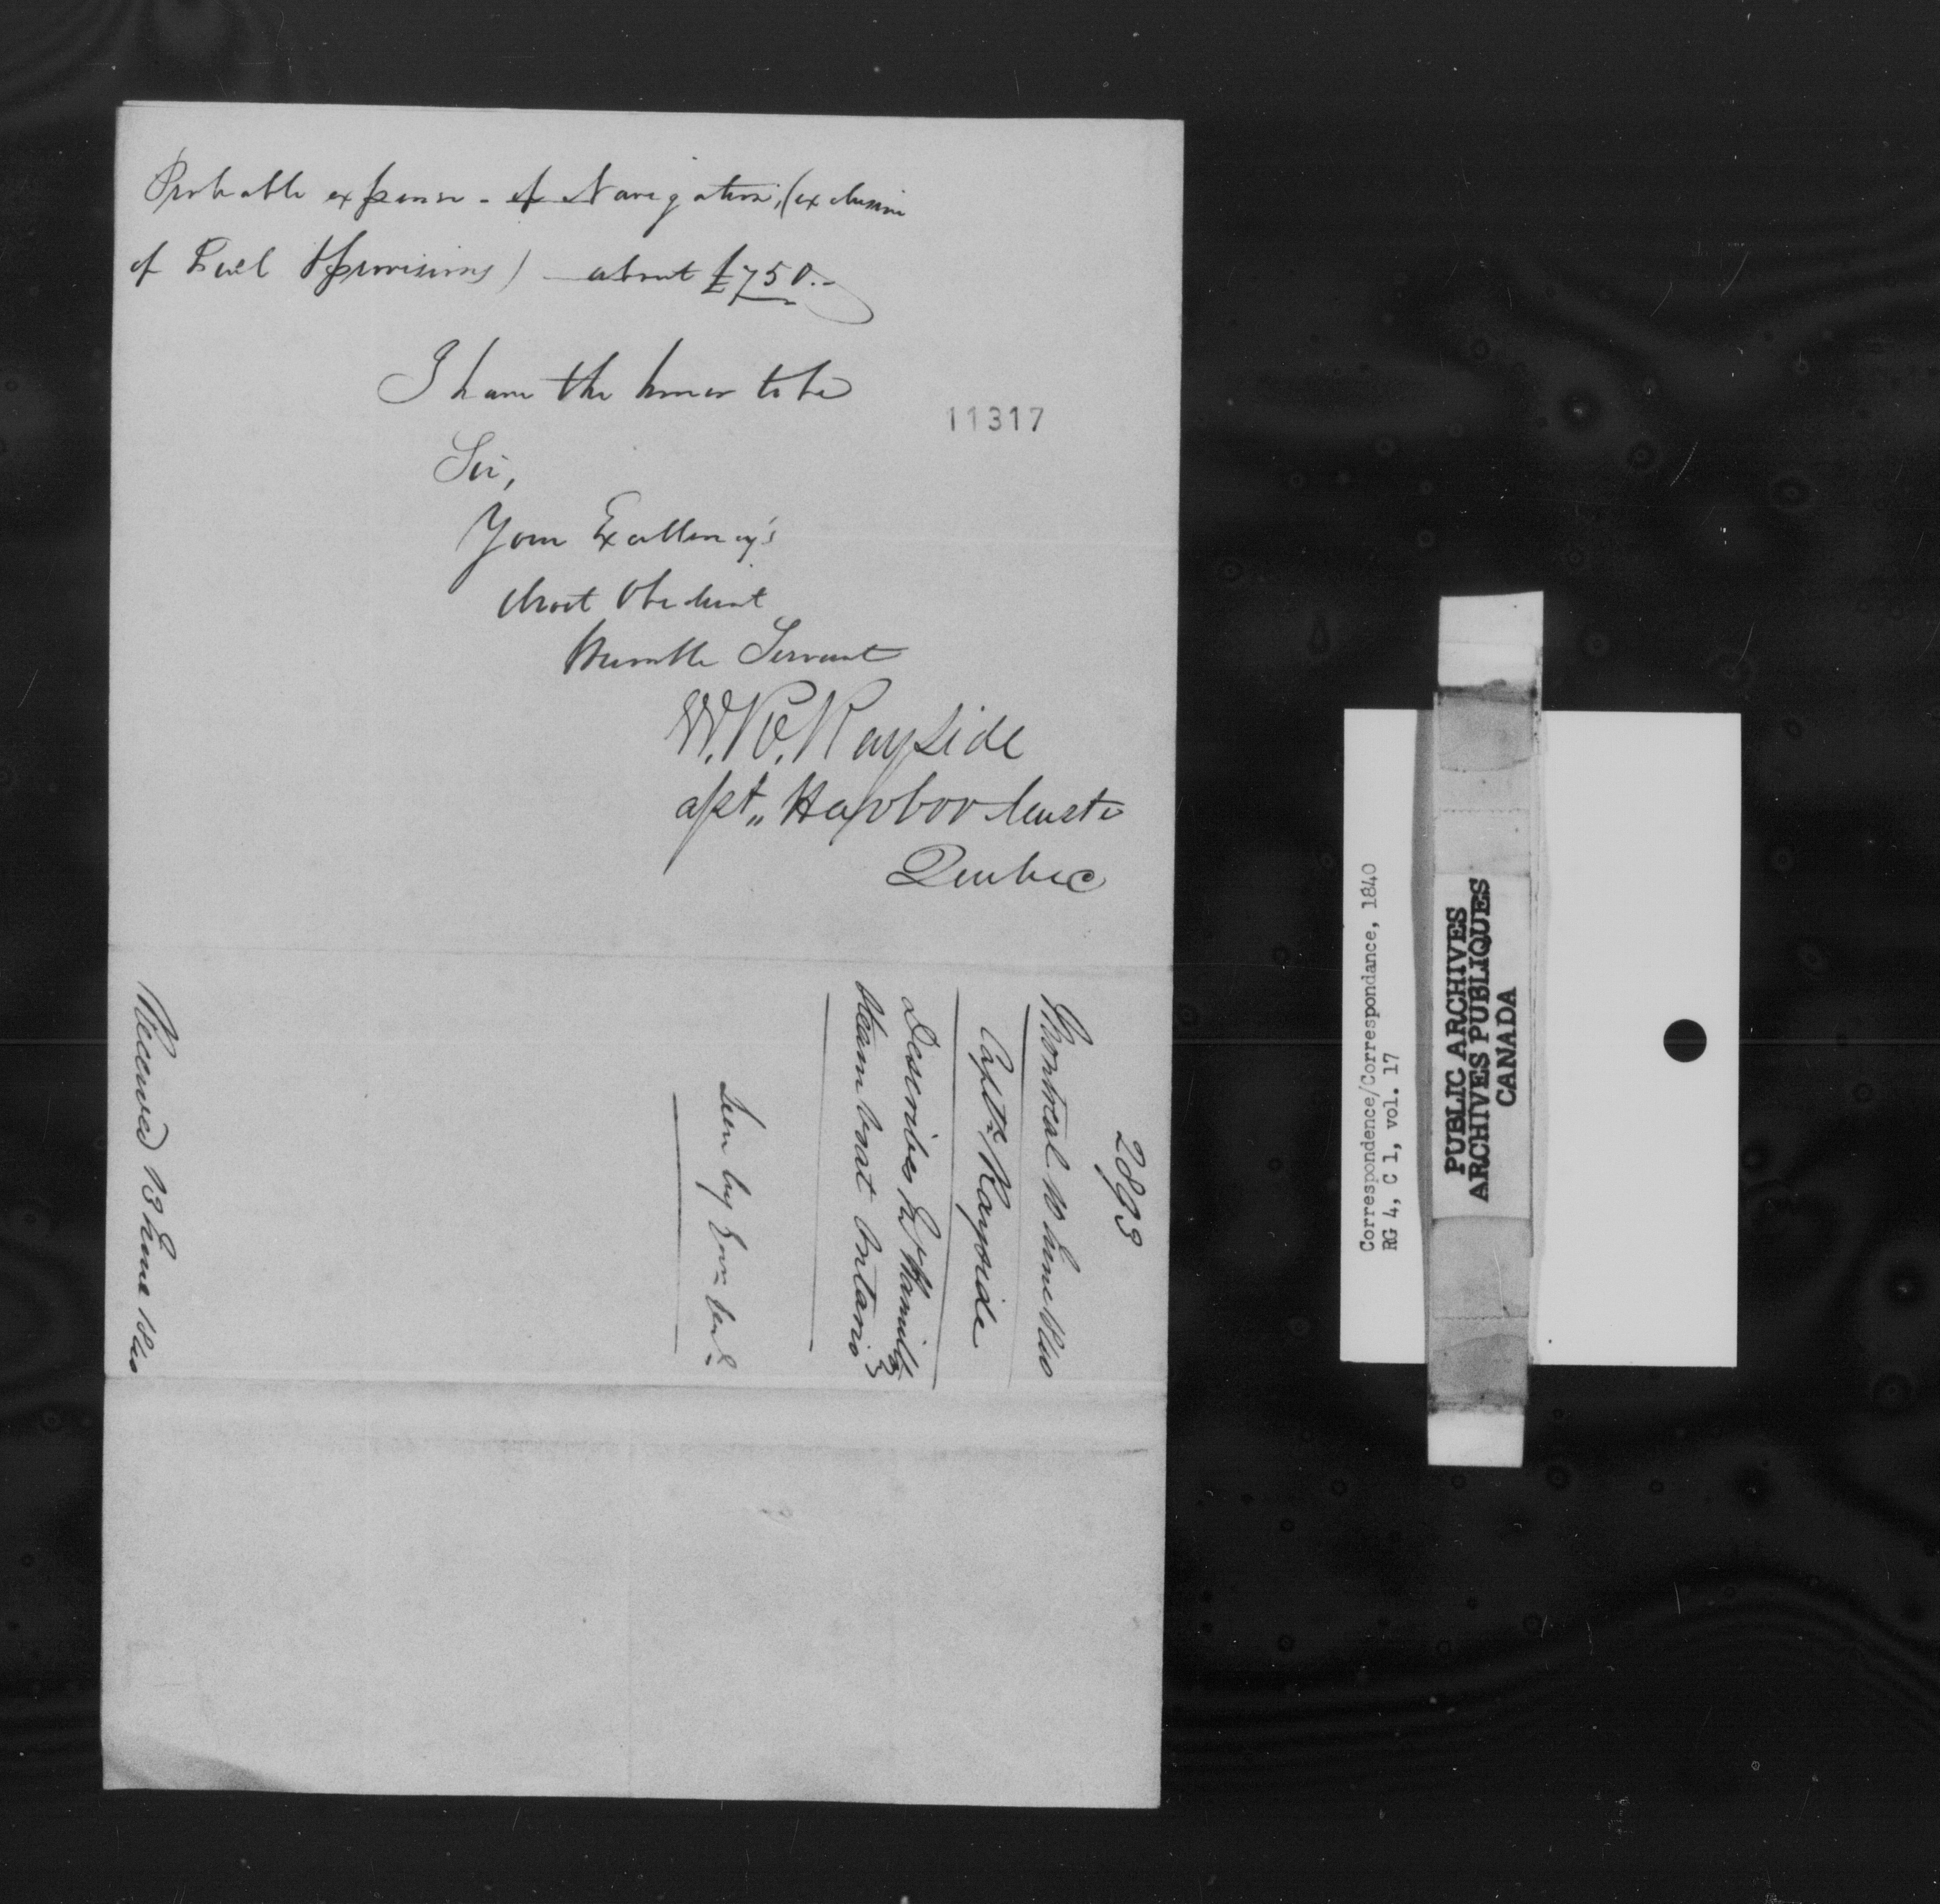 Probable expense - of Navigation, (exclusive
of Fuel & provisions) about £750.-
I have the honor to be
11317
Sir,
Your Excellency's
Most Obedient
Humble Servant
W. R. Rayside
asst,, Harbor Master
Quebec
2893
Montreal 10 June 1840
Captn Rayside
Describes Mr Hamilton's
Steam boat Ontario
Seen by Govr Genl
Received 13 June 1840
Correspondence/Correspondance, 1840
RG 4, C 1, vol. 17
PUBLIC ARCHIVES
ARCHIVES PUBLIQUES
CANADA